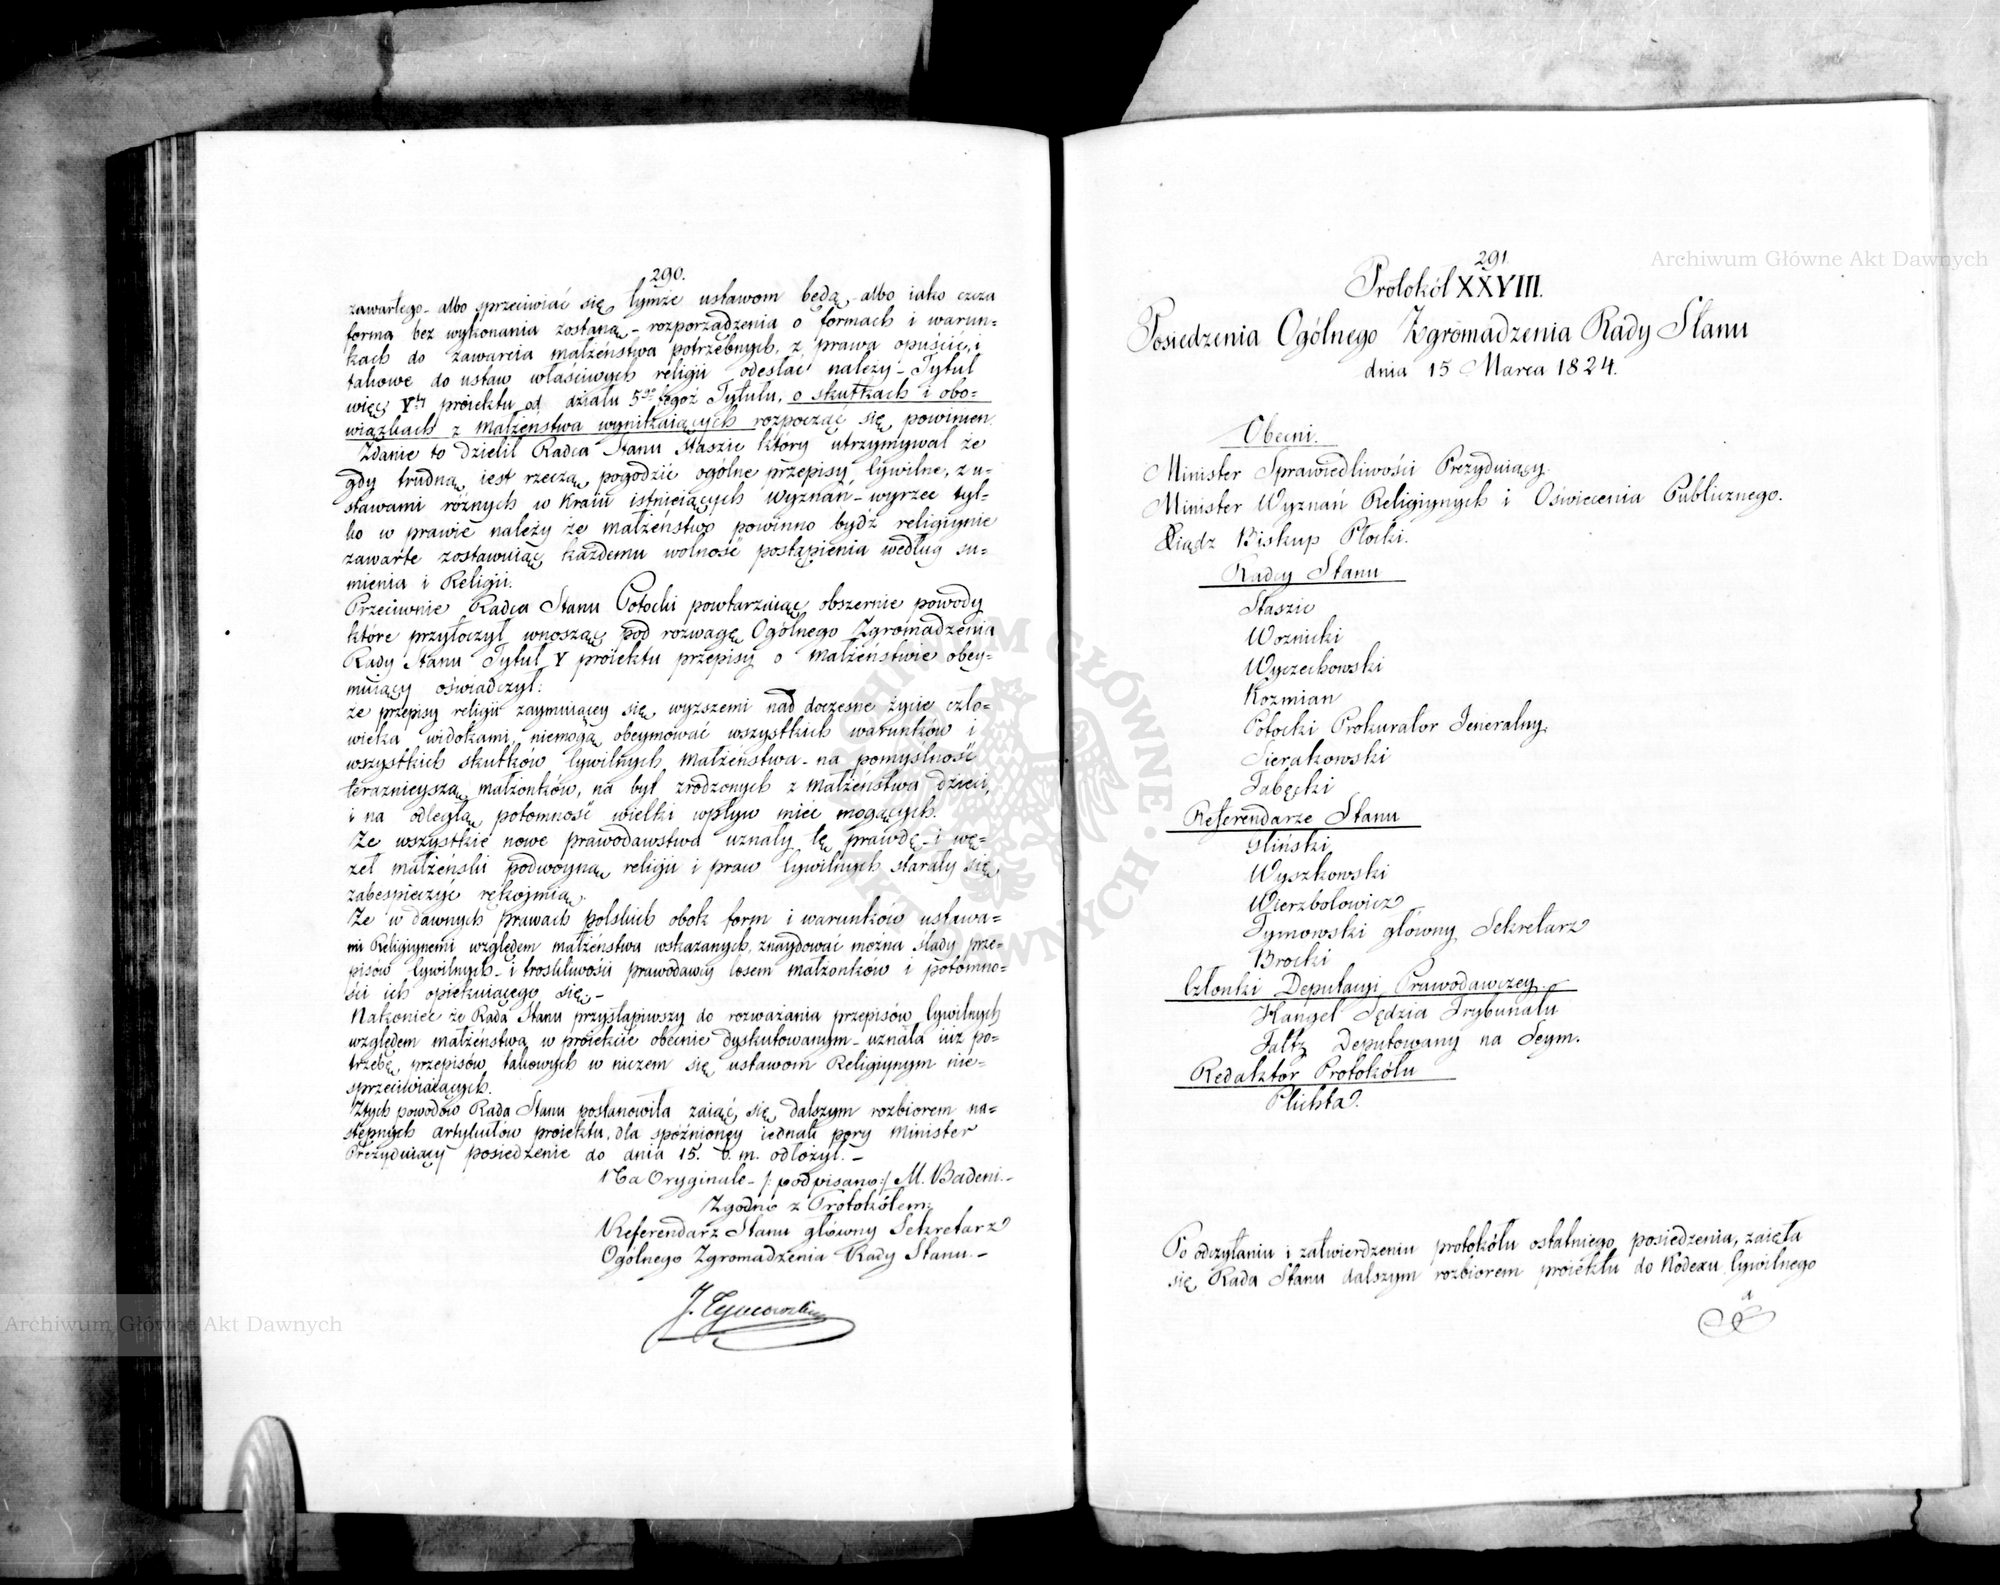 290.
zawartego - albo sprzeciwiać się tymże ustawom będą, albo iako czcza
forma bez wykonania zostaną - rozporządzenia o formach i warun=
kach do zawarcia małżeństwa potrzebnych, z prawa opuścić, i
takowe do ustaw właściwych religii odesłać należy - Tytuł
więc Vty proiektu od działu 5go tegoż Tytułu, o skutkach i obo=
wiązkach z małżeństwa wynikaiących rozpocząć się powinien.
Zdanie to dzielił Radca Stanu Staszic który utrzymywał że
gdy trudną iest rzeczą pogodzić ogólne przepisy Cywilne, z u=
stawami różnych w kraiu istnieiących Wyznań - wyrzec tyl=
ko w prawie należy że małżeństwo powinno bydź religiynie
zawarte zostawuiąc każdemu wolność postąpienia według su=
mienia i Religii.
Przeciwnie Radca Stanu Potocki powtarzaiąc obszernie powody
które przytoczył wnosząc pod rozwagę Ogólnego Zgromadzenia
Rady Stanu Tytuł V proiektu przepisy o małżeństwie obey=
muiący oświadczył:
że przepisy religii zaymuiącey się wyższemi nad doczesne życie czło=
wieka widokami, niemogą obeymować wszystkich warunków i
wszystkich skutków Cywilnych małżeństwa - na pomyślność
teraznieyszą małżonków, na byt zrodzonych z małżeństwa dzieci,
i na odległą potomność wielki wpływ mieć mogących.
Że wszystkie nowe prawodawstwa uznały tę prawdę - i wę=
zeł małżeński podwóyną religii i praw Cywilnych starały się
zabespieczyć rękoymią.
Że w dawnych prawach polskich obok form i warunków ustawa=
mi Religiynemi względem małżeństwa wskazanych, znaydować można ślady prze=
pisów Cywilnych - i troskliwości prawodawcy losem małżonków i potomno=
ści ich opiekuiącego się -
Nakoniec że Rada Stanu przystąpiwszy do rozważania przepisów Cywilnych
względem małżeństwa w proiekcie obecnie dyskutowanym - uznała iuż po=
trzebę przepisów takowych w niczem się ustawom Religiynym nie=
sprzeciwiaiących.
Ztych powodów Rada Stanu postanowiła zaiąć się dalszym rozbiorem na=
stępnych artykułów proiektu, dla spóźnioney iednak pory Minister
Prezyduiący posiedzenie do dnia 15. b. m. odłożył. -
Na Oryginale - /: podpisano :/ M. Badeni. -
Zgodno z Protokółem:
Referendarz Stanu główny Sekretarz
Ogólnego Zgromadzenia Rady Stanu. -
J. Tymowski
291.
Protokół XXVIII.
Posiedzenia Ogólnego Zgromadzenia Rady Stanu
dnia 15 Marca 1824.
Obecni.
Minister Sprawiedliwości Prezyduiący.
Minister Wyznań Religiynych i Oświecenia Publicznego.
Xiądz Biskup Płocki.
Radcy Stanu
Staszic
Woznicki
Wyczechowski
Kozmian
Potocki Prokurator Jeneralny.
Sierakowski
Tabęcki
Referendarze Stanu
Gliński
Wyszkowski
Wierzbołowicz
Tymowski główny Sekretarz
Brocki
Członki Deputacyi Prawodawczey.
Hangel Sędzia Trybunału
Faltz Deputowany na Seym.
Redaktor Protokółu
Plichta.
Po odczytaniu i zatwierdzeniu protokółu ostatniego posiedzenia, zaięła
się Rada Stanu dalszym rozbiorem proiektu do Kodexu Cywilnego
Archiwum Główne Akt Dawnych
Archiwum Główne Akt Dawnych
ARCHIWUM GŁÓWNE AKT DAWNYCH